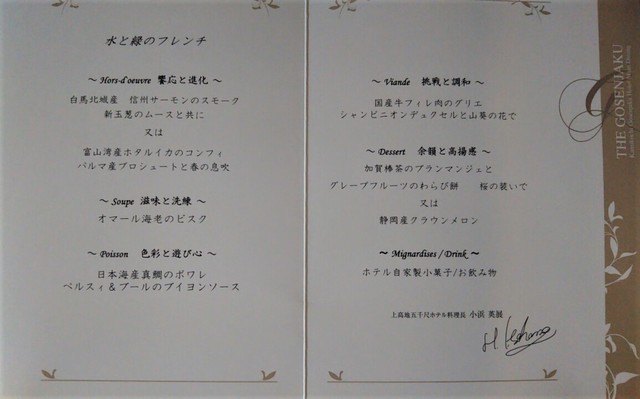 水と緑のフレンチ
～ Hors-d'oeuvre 饗応と進化 ～
白馬北城産 信州サーモンのスモーク
新玉葱のムースと共に
又は
富山湾産ホタルイカのコンフィ
パルマ産プロシュートと春の息吹
～ Soupe 滋味と洗練 ～
オマール海老のビスク
～ Poisson 色彩と遊び心 ～
日本海産真鯛のポワレ
ベルスィ＆ブールのブイヨンソース
～ Viande 挑戦と調和 ～
国産牛フィレ肉のグリエ
シャンピニオンデュクセルと山葵の花で
～ Dessert 余韻と高揚感 ～
加賀棒茶のブランマンジェと
グレープフルーツのわらび餅 桜の装いで
又は
静岡産クラウンメロン
～ Mignardises / Drink ～
ホテル自家製小菓子/お飲み物
上高地五千尺ホテル料理長 小浜 英展
THE GOSENJAKU